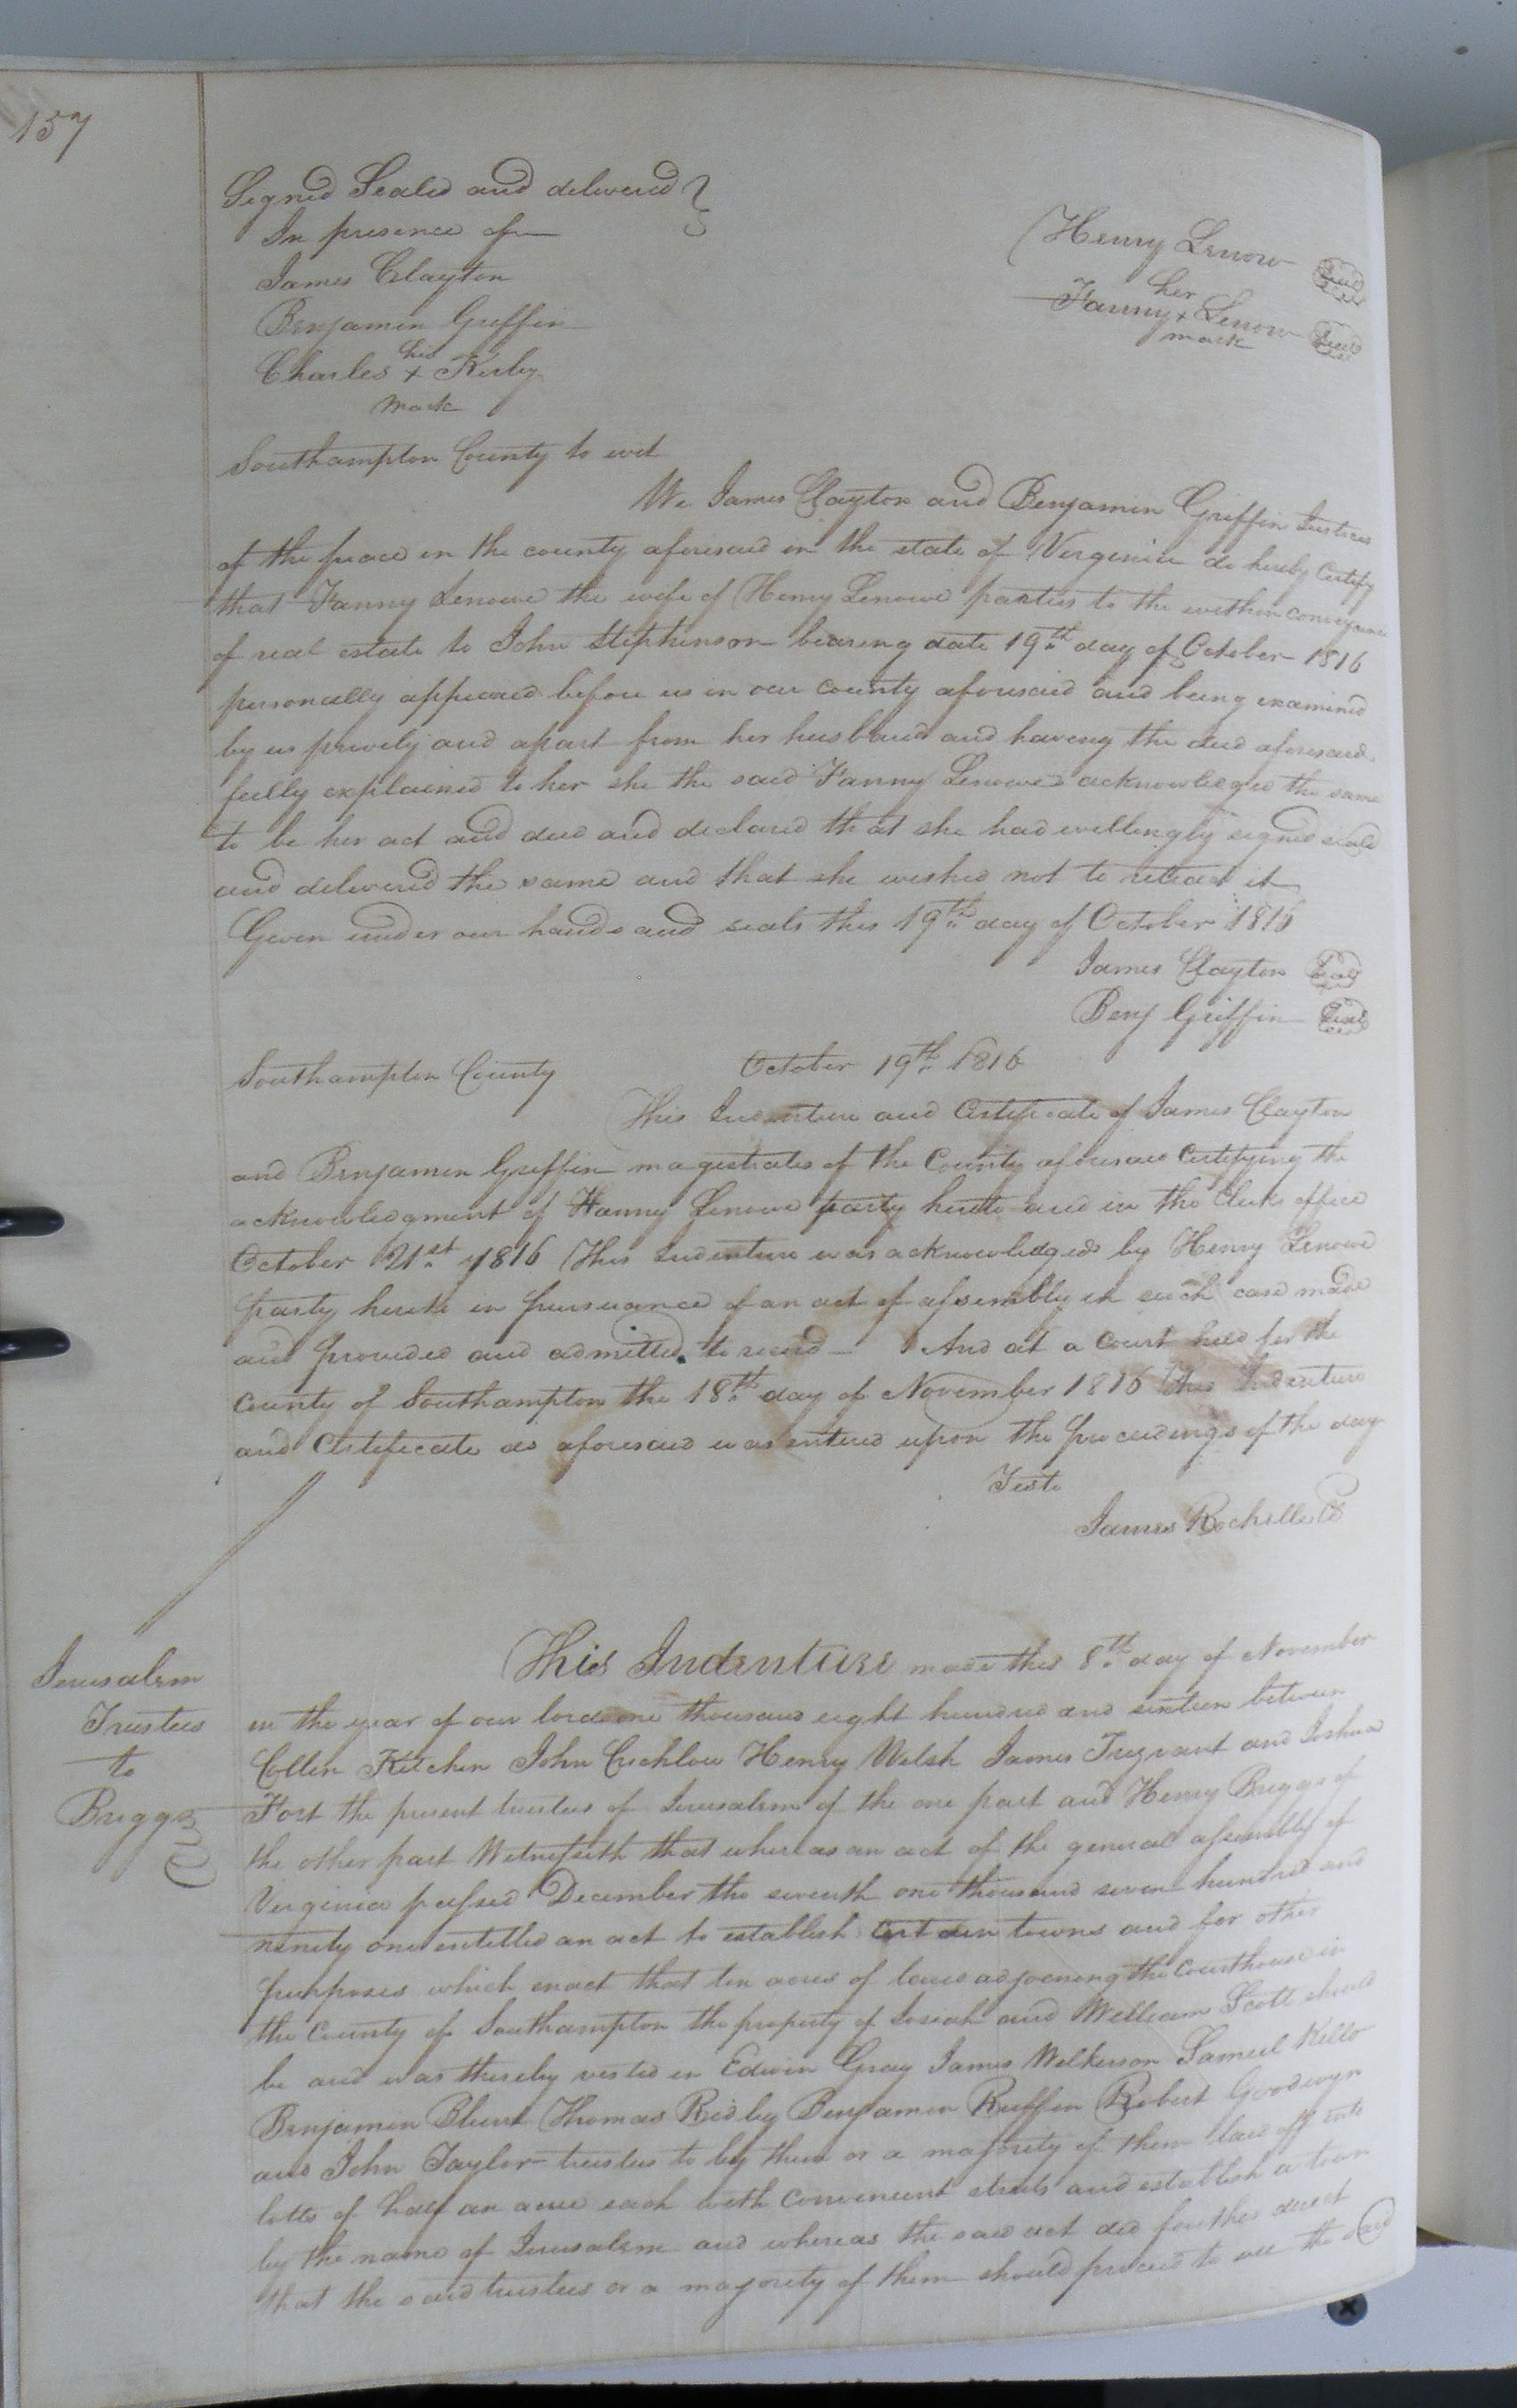 157
Signed Sealed and delivered }
In presence of
James Clayton
Benjamin Griffin
his
Charles + Kirby
mark
Henry Lenow Seal
her
Fanny + Lenow Seal
mark
Southampton County to wit
We James Clayton and Benjamin Griffin Justices
of the peace in the county aforesaid in the state of Virginia do hereby Certify
that Fanny Lenowe the wife of Henry Lenowe parties to the within conveyance
of real estate to John Stephenson bearing date 19th day of October 1816
personally appeared before us in our county aforesaid and being examined
by us privily and apart from her husband and having the deed aforesaid
fully explained to her she the said Fanny Lenowe acknowledged the same
to be her act and deed and declared that she had willingly signed seald
and delivered the same and that she wished not to retract it
Given under our hands and seals this 19th day of October 1816
James Clayton Seal
Benj Griffin Seal
Southampton County October 19th 1816
This Indenture and Certificate of James Clayton
and Benjamin Griffin magistrates of the County aforesaid Certifying the
acknowledgment of Fanny Lenowe party hereto and in the Clerks office
October 21st 1816 This Indenture was acknowledged by Henry Lenowe
party hereto in pursuance of an act of assembly in such case made
and provided and admitted to record — And at a Court held for the
County of Southampton the 18th day of November 1816 This Indenture
and Certificate as aforesaid was entered upon the proceedings of the day
Teste
James Rochelle
Jerusalem
Trustees
to
Briggs
This Indenture made this 8th day of November
in the year of our lord one thousand eight hundred and sixteen between
Collin Kitchen John Crichlow Henry Welsh James Trezvant and Joshua
Fort the present trustees of Jerusalem of the one part and Henry Briggs of
the other part Witnesseth that whereas an act of the general assembly of
Virginia passed December the seventh one thousand seven hundred and
ninety one entitled an act to establish certain towns and for other
purposes which enact that ten acres of land adjoening the Courthouse in
the County of Southampton the property of Josiah and William Scott should
be and was thereby vested in Edwin Gray James Wilkerson Samuel Kello
Benjamin Blunt Thomas Ridley Benjamin Ruffin Robert Goodwyn
and John Taylor trustees to by them or a majority of them laid off into
lotts of half an acre each with convenient streets and establish a town
by the name of Jerusalem and whereas the said act did further direct
that the said trustees or a majority of them should proceed to the said